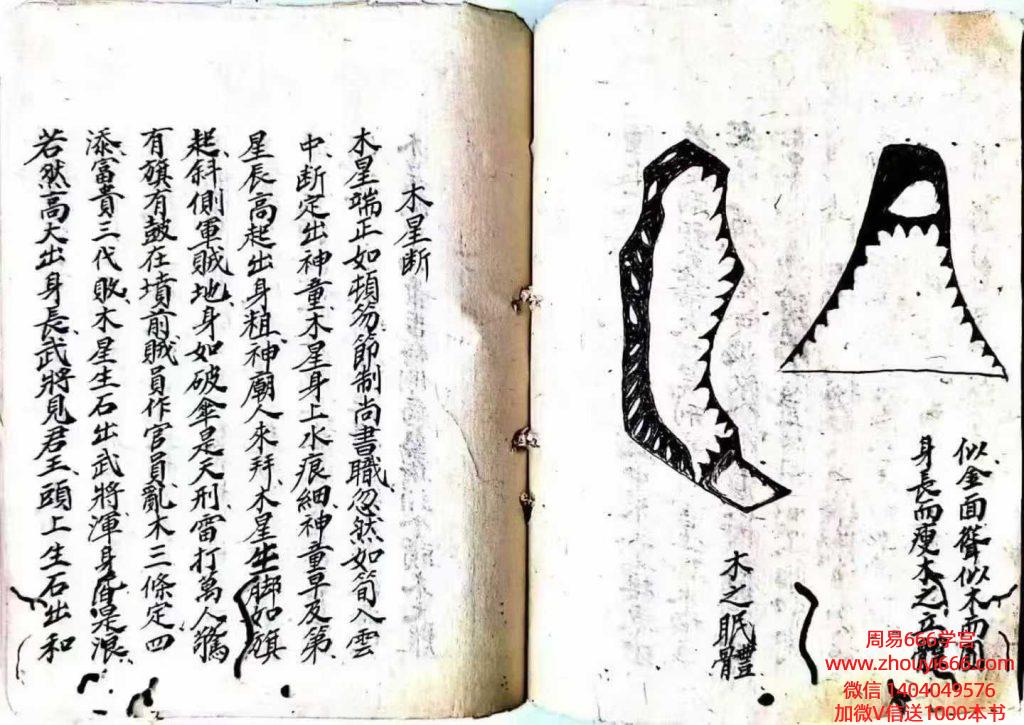 似金面聳似木而圓
身長而瘦木之立體
木之眠體
木星断
木星端正如頓笏節制尚書職忽然如筍入雲
中断定出神童木星身上水痕細神童早及第
星辰高起出身粗神廟人來拜木星生脚如旗
起斜側軍賊地身如破傘是天刑雷打萬人驚
有旗有鼓在墳前賊員作官員亂木三條定四
添富貴三代敗木星生石出武將渾身皆是浪
若然高大出身長武將見君王頭上生石出和
周易666学宫
www.zhouyi666.com
微信 1404049576
加微V信送1000本书